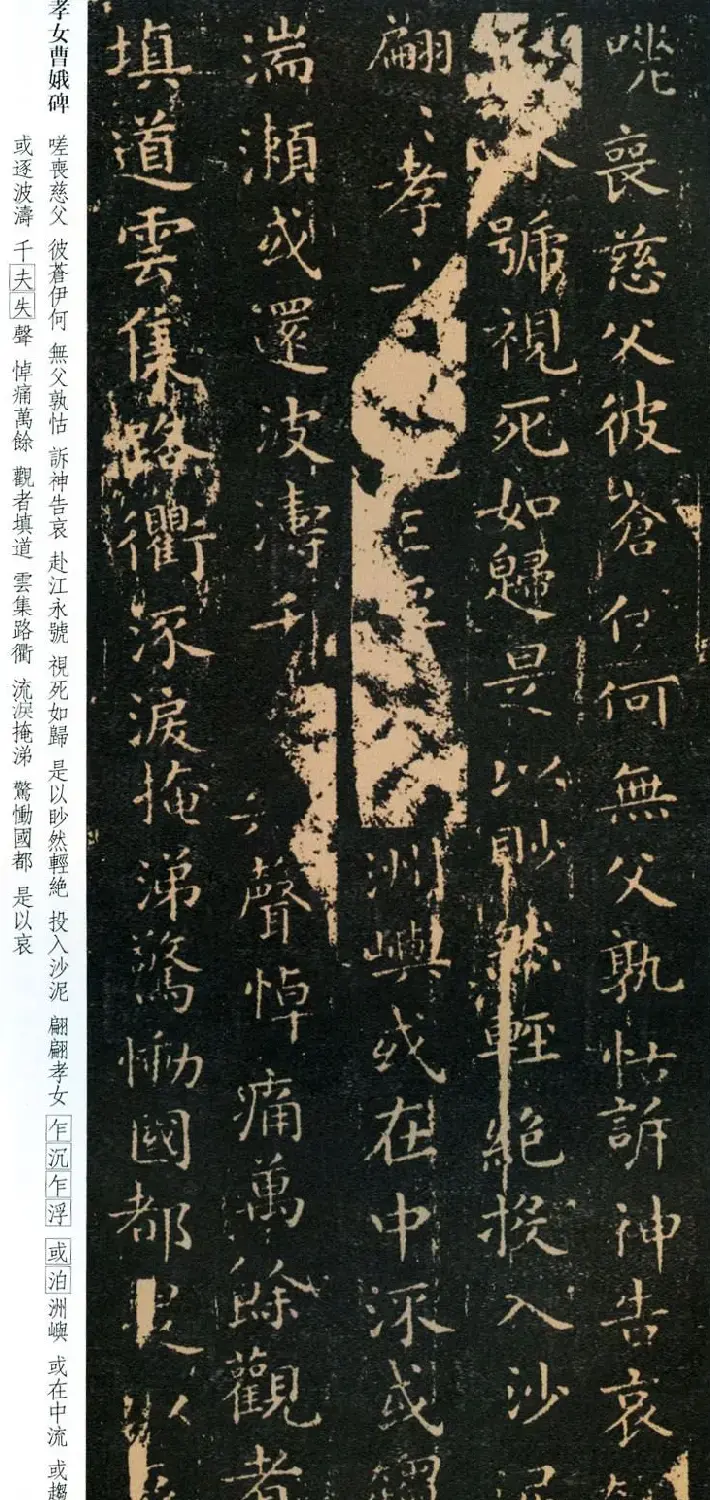 嗟喪慈父彼蒼伊何無父孰怙訴神告哀
號視死如歸是以眇然輕絕投入沙
翩〻孝女洲嶼或在中流或趨
湍瀨或還波濤千聲悼痛萬餘觀者
填道雲集路衢流淚掩涕驚慟國都是以哀
孝女曹娥碑
嗟喪慈父 彼蒼伊何 無父孰怙 訴神告哀 赴江永號 視死如歸 是以眇然輕絕 投入沙泥 翩翩孝女 乍沉乍浮 或泊洲嶼 或在中流 或趨
或逐波濤 千夫失聲 悼痛萬餘 觀者填道 雲集路衢 流淚掩涕 驚慟國都 是以哀